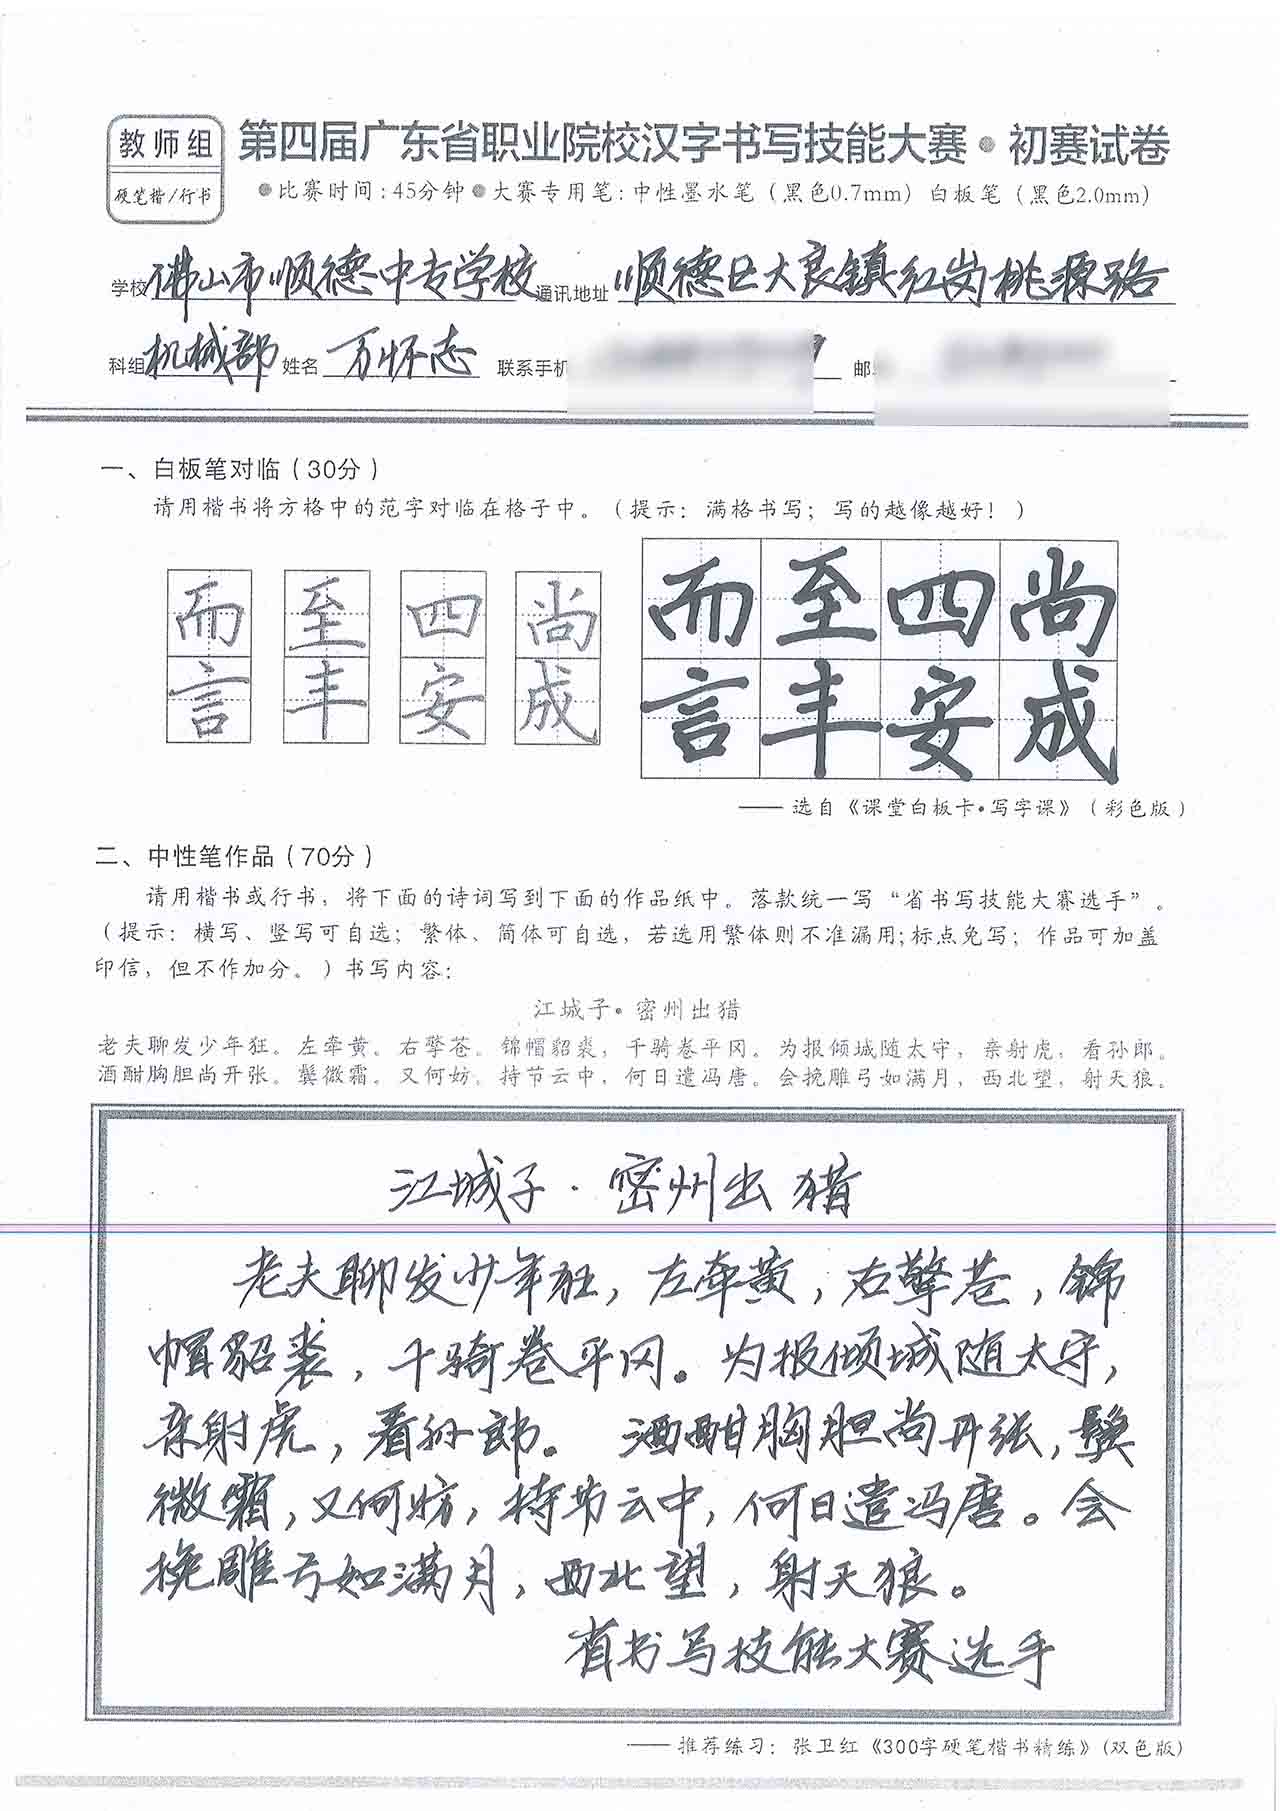 教师组
硬笔楷/行书
第四届广东省职业院校汉字书写技能大赛·初赛试卷
●比赛时间:45分钟●大赛专用笔:中性墨水笔(黑色0.7mm)白板笔(黑色2.0mm)
学校 佛山市顺德中专学校 通讯地址 顺德区大良镇红岗桃源路
科组 机械部 姓名 万怀志 联系手机 邮
一、白板笔对临(30分)
请用楷书将方格中的范字对临在格子中。(提示:满格书写;写的越像越好!)
而 至 四 尚 而 至 四 尚
言 丰 安 成 言 丰 安 成
——选自《课堂白板卡·写字课》(彩色版)
二、中性笔作品(70分)
请用楷书或行书,将下面的诗词写到下面的作品纸中。落款统一写“省书写技能大赛选手”。
(提示:横写、竖写可自选;繁体、简体可自选,若选用繁体则不准漏用;标点免写;作品可加盖
印信,但不作加分。)书写内容:
江城子·密州出猎
老夫聊发少年狂。左牵黄。右擎苍。锦帽貂裘,千骑卷平冈。为报倾城随太守,亲射虎,看孙郎。
酒酣胸胆尚开张。鬓微霜。又何妨。持节云中,何日遣冯唐。会挽雕弓如满月,西北望,射天狼。
江城子·密州出猎
老夫聊发少年狂,左牵黄,右擎苍,锦
帽貂裘,千骑卷平冈。为报倾城随太守,
亲射虎,看孙郎。酒酣胸胆尚开张,鬓
微霜,又何妨,持节云中,何日遣冯唐。会
挽雕弓如满月,西北望,射天狼。
省书写技能大赛选手
——推荐练习:张卫红《300字硬笔楷书精练》(双色版)